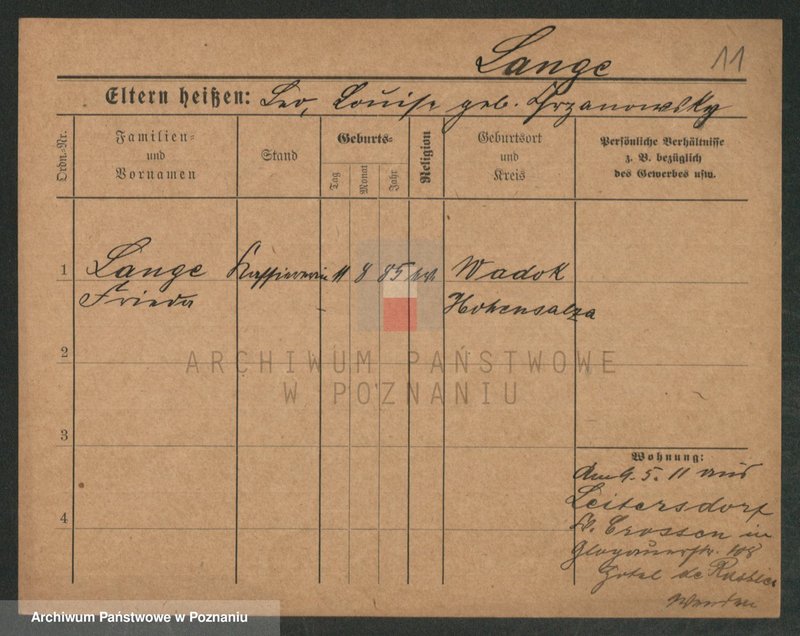 Lange 11
Eltern heißen: Leo, Louise geb.
Ordn.-Nr.
Familien-
und
Vornamen
Stand
Geburts-
Tag
Monat
Jahr
Religion
Geburtsort
und
Kreis
Persönliche Verhältnisse
z. B. bezüglich
des Gewerbes usw.
1 Lange Kassiererin 11 8 85 Wadok
Frieda Hohensalza
2
ARCHIWUM PAŃSTWOWE
W POZNANIU
3
Wohnung:
Am 9. 5. 11 aus
Leitersdorf
4
Crossen in
Glogauerstr. 108
Hotel de
Archiwum Państwowe w Poznaniu